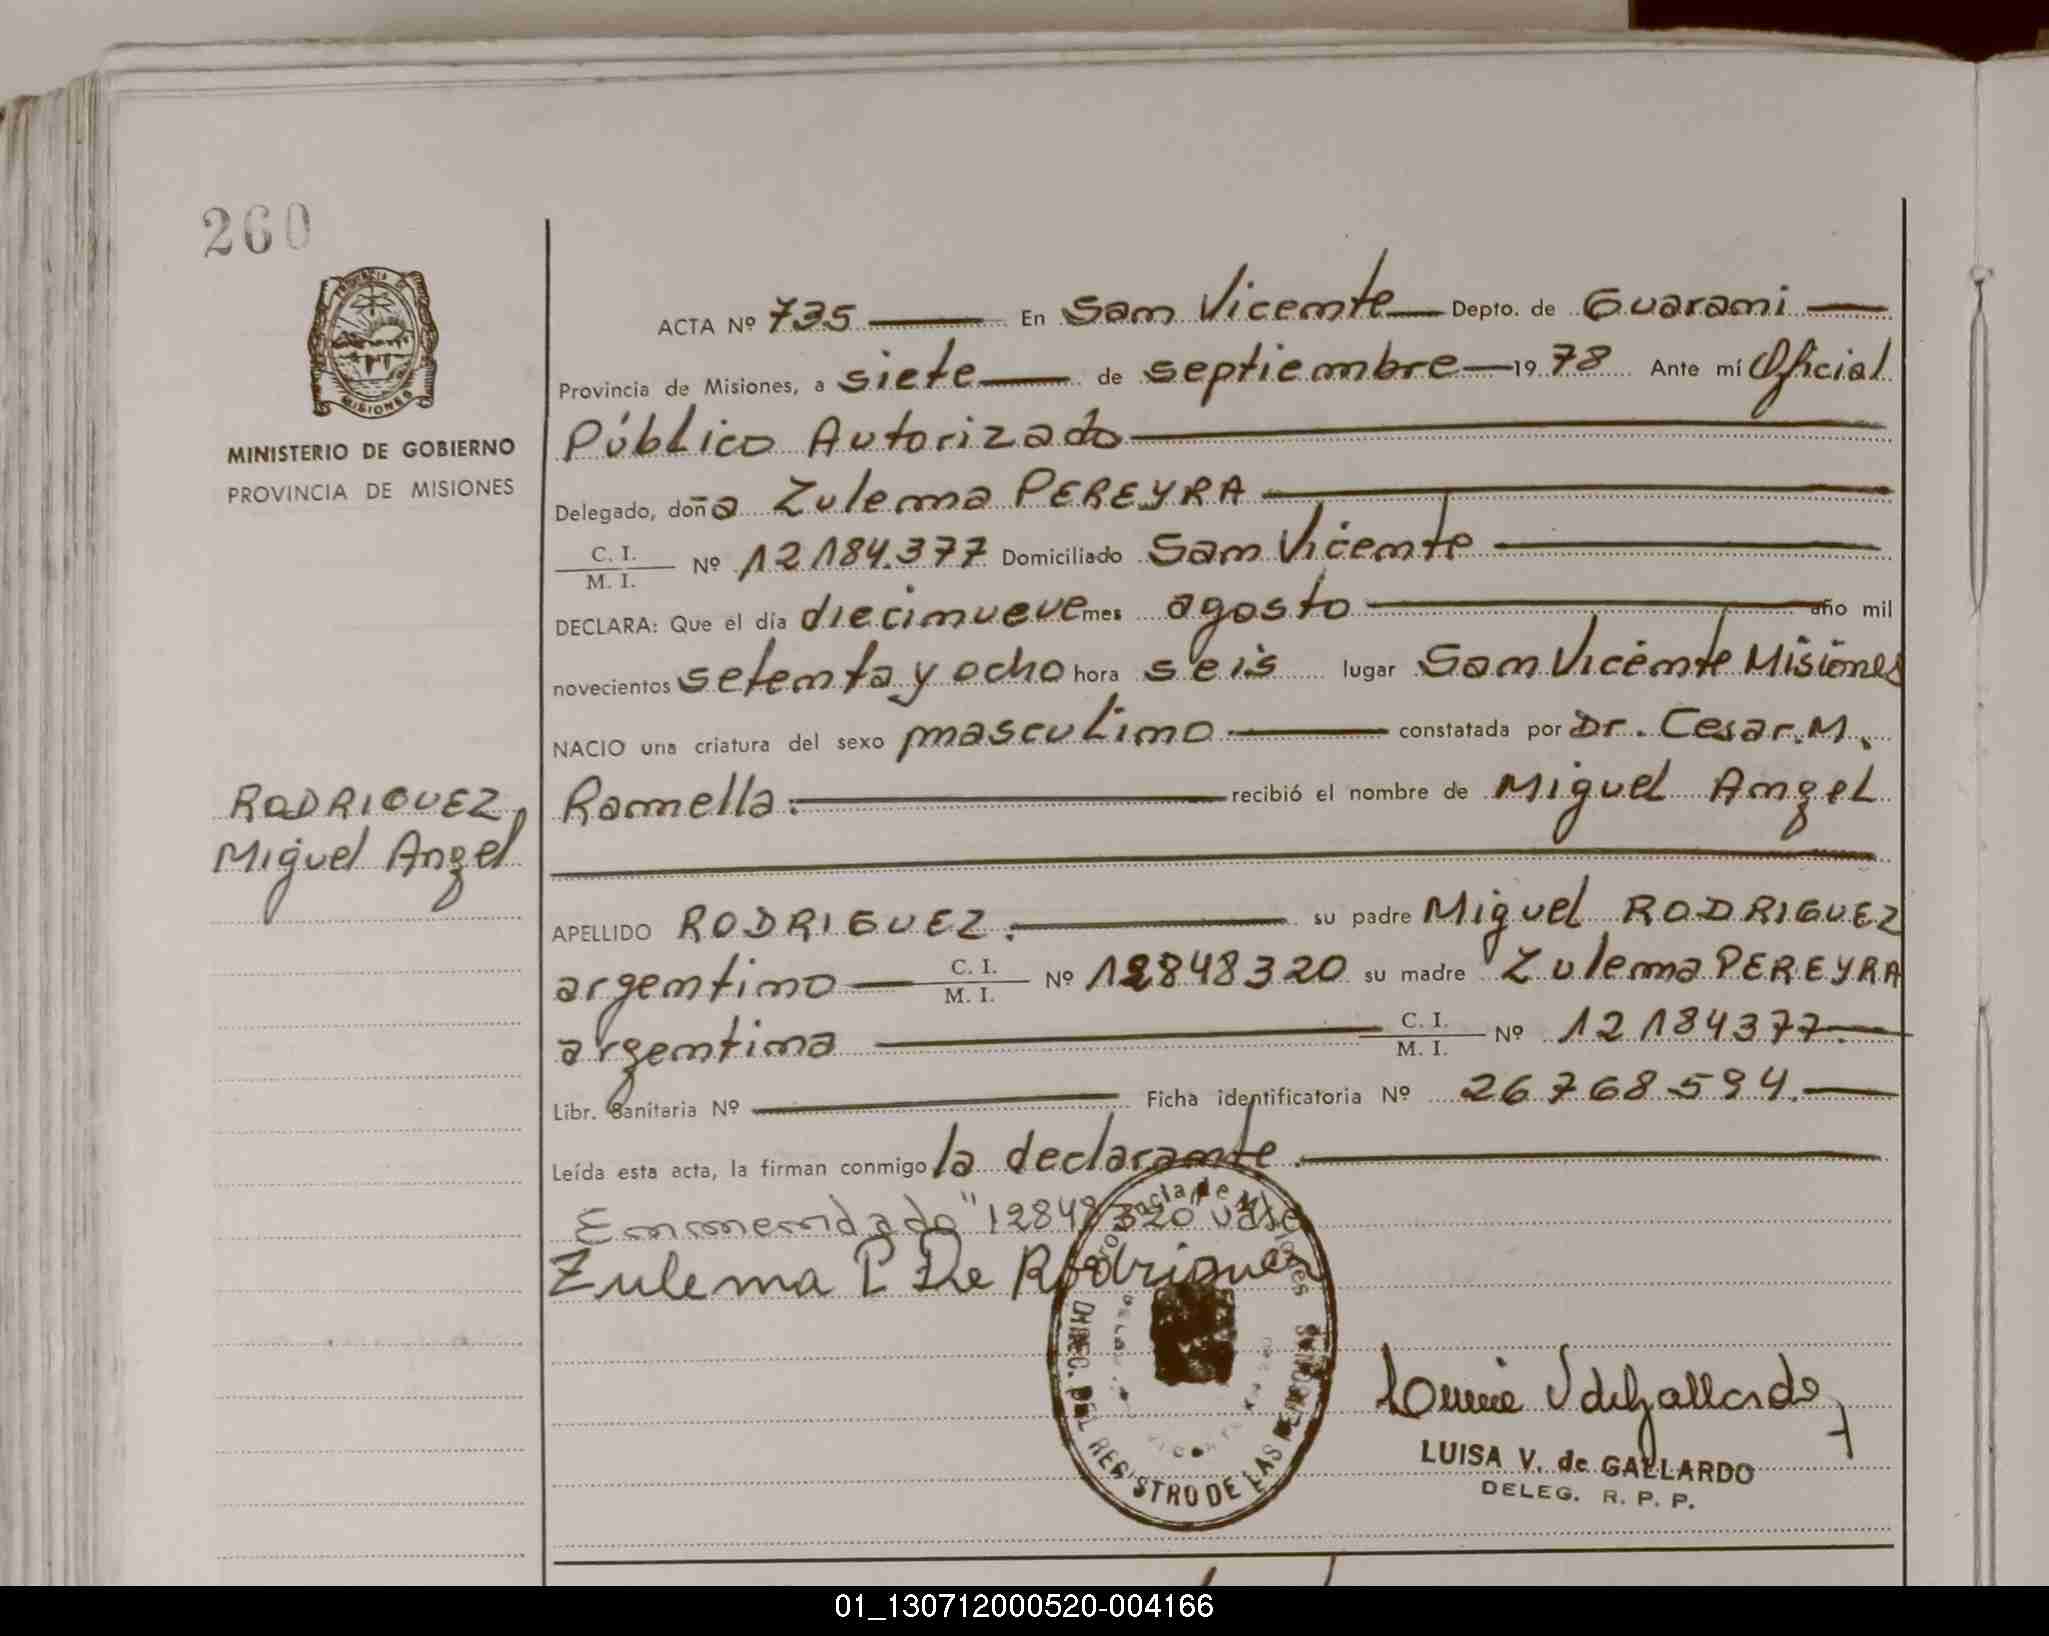 260
PROVINCIA DE
MISIONES
MINISTERIO DE GOBIERNO
PROVINCIA DE MISIONES
RODRIGUEZ,
Miguel Angel
ACTA Nº 735 En San Vicente Depto. de Guarani
Provincia de Misiones, a siete de septiembre 1978 Ante mí Oficial
Público Autorizado
Delegado, doña Zulema PEREYRA
C. I.
M. I. Nº 12184.377 Domiciliado San Vicente
DECLARA: Que el día diecinueve mes agosto año mil
novecientos setenta y ocho hora seis lugar San Vicente Misiones
NACIO una criatura del sexo masculino constatada por Dr. Cesar. M.
Ramella. recibió el nombre de Miguel Angel
APELLIDO RODRIGUEZ. su padre Miguel RODRIGUEZ
argentino C. I.
M. I. Nº 12848320 su madre Zulema PEREYRA
argentina C. I.
M. I. Nº 12184377.
Libr. Sanitaria Nº Ficha identificatoria Nº 26768594.
Leída esta acta, la firman conmigo la declarante.
Enmendado "12848320 vale
Zulema P De Rodriguez
Provincia de Misiones
DIREC. DEL REGISTRO DE LAS PERSONAS
LUISA V. de GALLARDO
DELEG. R. P. P.
01_130712000520-004166